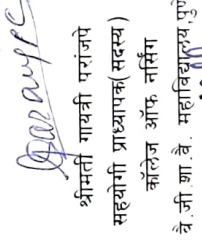 श्रीमती गायत्री परांजपे
सहयोगी प्राध्यापक(सदस्य)
कॉलेज ऑफ नर्सिंग
बै.जी.शा.वै. महाविद्यालय,पुणे